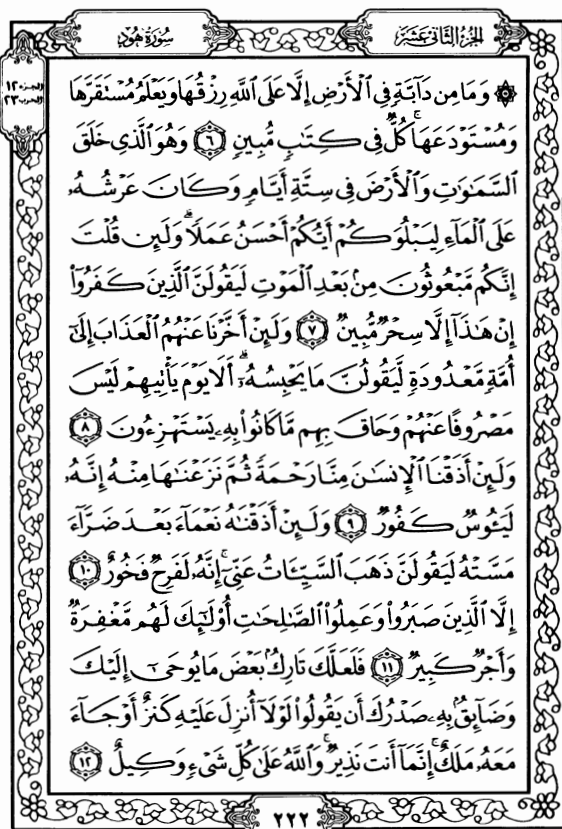 سُورَةُ هُودٍ
الجُزْءُ الثَّانِي عَشَرَ
الجزء ١٢
الحزب ٢٣
۞ وَمَا مِن دَآبَّةٍ فِي ٱلْأَرْضِ إِلَّا عَلَى ٱللَّهِ رِزْقُهَا وَيَعْلَمُ مُسْتَقَرَّهَا
وَمُسْتَوْدَعَهَا ۚ كُلٌّ فِي كِتَٰبٍ مُّبِينٍ ٦ وَهُوَ ٱلَّذِي خَلَقَ
ٱلسَّمَٰوَٰتِ وَٱلْأَرْضَ فِي سِتَّةِ أَيَّامٍ وَكَانَ عَرْشُهُۥ
عَلَى ٱلْمَآءِ لِيَبْلُوَكُمْ أَيُّكُمْ أَحْسَنُ عَمَلًا ۗ وَلَئِن قُلْتَ
إِنَّكُم مَّبْعُوثُونَ مِنۢ بَعْدِ ٱلْمَوْتِ لَيَقُولَنَّ ٱلَّذِينَ كَفَرُوٓا۟
إِنْ هَٰذَآ إِلَّا سِحْرٌ مُّبِينٌ ٧ وَلَئِنْ أَخَّرْنَا عَنْهُمُ ٱلْعَذَابَ إِلَىٰٓ
أُمَّةٍ مَّعْدُودَةٍ لَّيَقُولُنَّ مَا يَحْبِسُهُۥٓ ۗ أَلَا يَوْمَ يَأْتِيهِمْ لَيْسَ
مَصْرُوفًا عَنْهُمْ وَحَاقَ بِهِم مَّا كَانُوا۟ بِهِۦ يَسْتَهْزِءُونَ ٨
وَلَئِنْ أَذَقْنَا ٱلْإِنسَٰنَ مِنَّا رَحْمَةً ثُمَّ نَزَعْنَٰهَا مِنْهُ إِنَّهُۥ
لَيَـُٔوسٌ كَفُورٌ ٩ وَلَئِنْ أَذَقْنَٰهُ نَعْمَآءَ بَعْدَ ضَرَّآءَ
مَسَّتْهُ لَيَقُولَنَّ ذَهَبَ ٱلسَّيِّـَٔاتُ عَنِّىٓ ۚ إِنَّهُۥ لَفَرِحٌ فَخُورٌ ١٠
إِلَّا ٱلَّذِينَ صَبَرُوا۟ وَعَمِلُوا۟ ٱلصَّٰلِحَٰتِ أُو۟لَٰٓئِكَ لَهُم مَّغْفِرَةٌ
وَأَجْرٌ كَبِيرٌ ١١ فَلَعَلَّكَ تَارِكٌۢ بَعْضَ مَا يُوحَىٰٓ إِلَيْكَ
وَضَآئِقٌۢ بِهِۦ صَدْرُكَ أَن يَقُولُوا۟ لَوْلَآ أُنزِلَ عَلَيْهِ كَنزٌ أَوْ جَآءَ
مَعَهُۥ مَلَكٌ ۚ إِنَّمَآ أَنتَ نَذِيرٌ ۚ وَٱللَّهُ عَلَىٰ كُلِّ شَىْءٍ وَكِيلٌ ١٢
٢٢٢